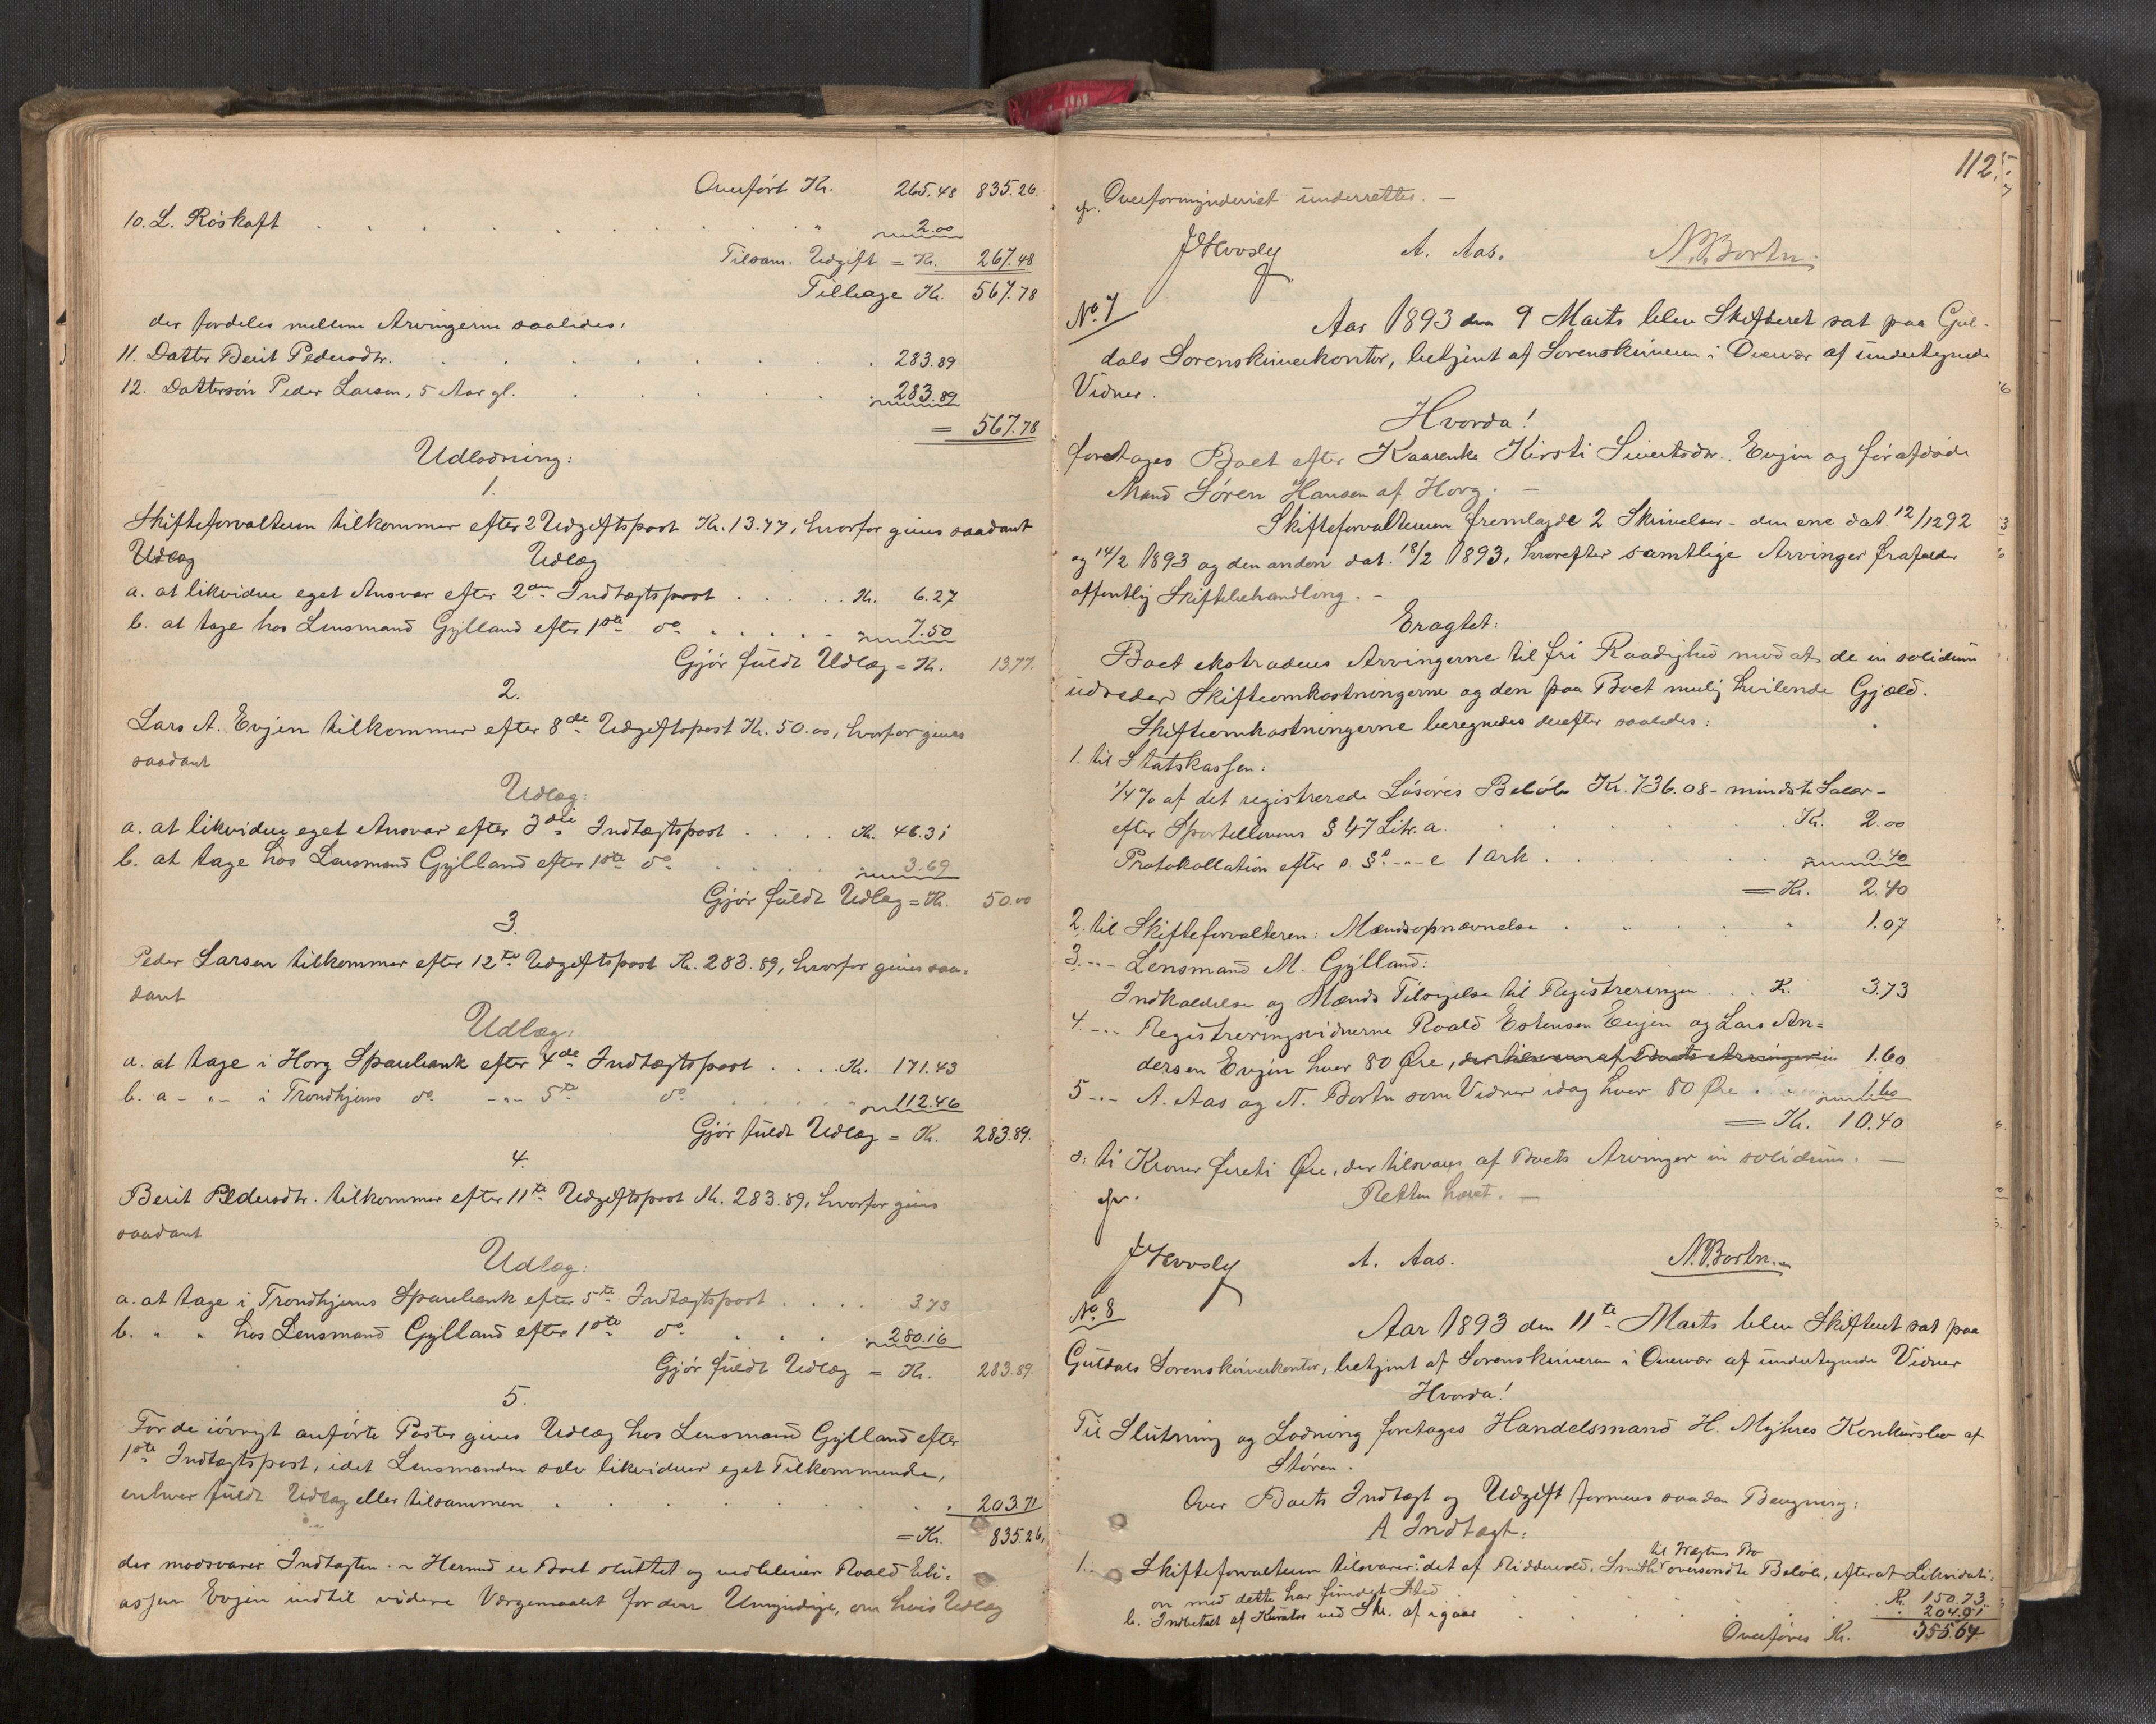 Overført Kr. 265.48 835.26.
10. L. Röskaft . . . . . . . . . " 2.00
Tilsam. Udgift = Kr. 267.48
Tilbage Kr. 567.78
der fordeles mellem Arvingerne saaledes:
11. Datter Berit Pedersdtr. . . . . . . . 283.89
12. Dattersön Peder Larsen, 5 Aar gl. . . . . . 283.89
= 567.78
Udlodning:
1.
Skifteforvalteren tilkommer efter 2 Udgiftspost Kr. 13.77, hvorfor gives saadant
Udlæg Udlæg
a. at likvidere eget Ansvar efter 2den Indtægtspost . . . . . . Kr. 6.27
b. at tage hos Lensmand Gylland efter 1ste do . . . . . 7.50
Gjør fuldt Udlæg = Kr. 13.77.
2.
Lars A. Evjen tilkommer efter 8de Udgiftspost Kr. 50.00, hvorfor gives
saadant
Udlæg:
a. at likvidere eget Ansvar efter 3die Indtægtspost . . . . Kr. 46.31
b. at tage hos Lensmand Gylland efter 1ste do . . . . 3.69
Gjør fuldt Udlæg = Kr. 50.00
3.
Peder Larsen tilkommer efter 12te Udgiftspost Kr. 283.89, hvorfor gives saa-
dant
Udlæg:
a. at tage i Horg Sparebank efter 4de Indtægtspost . . . . Kr. 171.43
b. a - " - i Trondhjems do. - " - 5te do. . . . . . 112.46
Gjør fuldt Udlæg = Kr. 283.89.
4.
Berit Pedersdtr. tilkommer efter 11te Udgiftspost Kr. 283.89, hvorfor gives
saadant
Udlæg:
a. at tage i Trondhjems Sparebank efter 5te Indtægtspost . . . . 3.73
b. " " hos Lensmand Gylland efter 1ste do . . . . 280.16
Gjør fuldt Udlæg = Kr. 283.89
5.
For de iövrigt anførte Poster gives Udlæg hos Lensmand Gylland efter
1ste Indtægtspost, idet Lensmanden selv likviderer eget Tilkommende,
enhver fuldt Udlæg eller tilsammen . . . . . . . 203.71
= Kr. 835.26.
der modsvarer Indtægten. - Hermed er Boet sluttet og vedbliver Roald Eli-
assen Evjen indtil videre Værgemaalet for den Umyndige, om hvis Udlæg
112.
Overformynderiet underrettes. -
A. Aas. N. Bortn.
No. 7
Aar 1893 den 9 Marts blev Skifteret sat paa Gul-
dals Sorenskriverkontor, betjent af Sorenskriveren i Overvær af undertegnede
Vidner.
Hvorda!
foretages Boet efter Kaarenke Kirsti Sivertsdtr. Evjen og førafdøde
Mand Søren Hansen af Horg. -
Skifteforvalteren fremlagde 2 Skrivelser - den ene dat. 12/1292
og 14/2 1893 og den anden dat. 18/2 1893, hvorefter samtlige Arvinger frafalder
offentlig Skiftebehandling. -
Eragtet:
Boet ekstraderes Arvingerne til fri Raadighed mod at de in solidum
udreder Skifteomkostningerne og den paa Boet mulig hvilende Gjæld.
Skifteomkostningerne beregnedes derefter saaledes:
1. til Statskassen:
1/4 % af det registrerede Løsøres Beløb Kr. 736.08 - mindste Salær -
efter Sportellovens § 47 Litr. a . . . . . . Kr. 2.00
Protokollation efter s. § - " - e 1 ark . . . . 0.40
= Kr. 2.40
2. til Skifteforvalteren: Mændsopnævnelse . . . . . 1.07
3. - " - Lensmand M. Gylland:
Indkaldelse og Mænds Tilsigelse til Registreringen . . Kr. 3.73
4. - " - Registreringsvidnerne Roald Estensen Evjen og Lars An-
dersen Evjen hver 80 Øre, 1.60
5 - " - A. Aas og N. Bortn som Vidner idag hver 80 Øre . . . 1.60
= Kr. 10.40
s: ti Kroner firti Øre, der tilsvares af Boets Arvinger in solidum. -
Retten hævet. -
A. Aas. N. Bortn.
No. 8
Aar 1893 den 11te Marts blev Skifteret sat paa
Guldals Sorenskriverkontor, betjent af Sorenskriveren i Overvær af undertegnede Vidner
Hvorda!
Til Slutning og Lodning foretages Handelsmand H. Myhres Konkursbo af
Støren.
Over Boets Indtægt og Udgift formeres saadan Beregning:
A Indtægt:
1. a Skifteforvalteren tilsvarer: det af Ridderwold, Smith til Bo oversendte Beløb, efterat Likvidati-
on med dette har fundet Sted . . . . . . Kr. 150.73
b. Indbetalt af Kurator ved Skr. af igaar . . . . . 204.91
Overføres Kr. 355.64